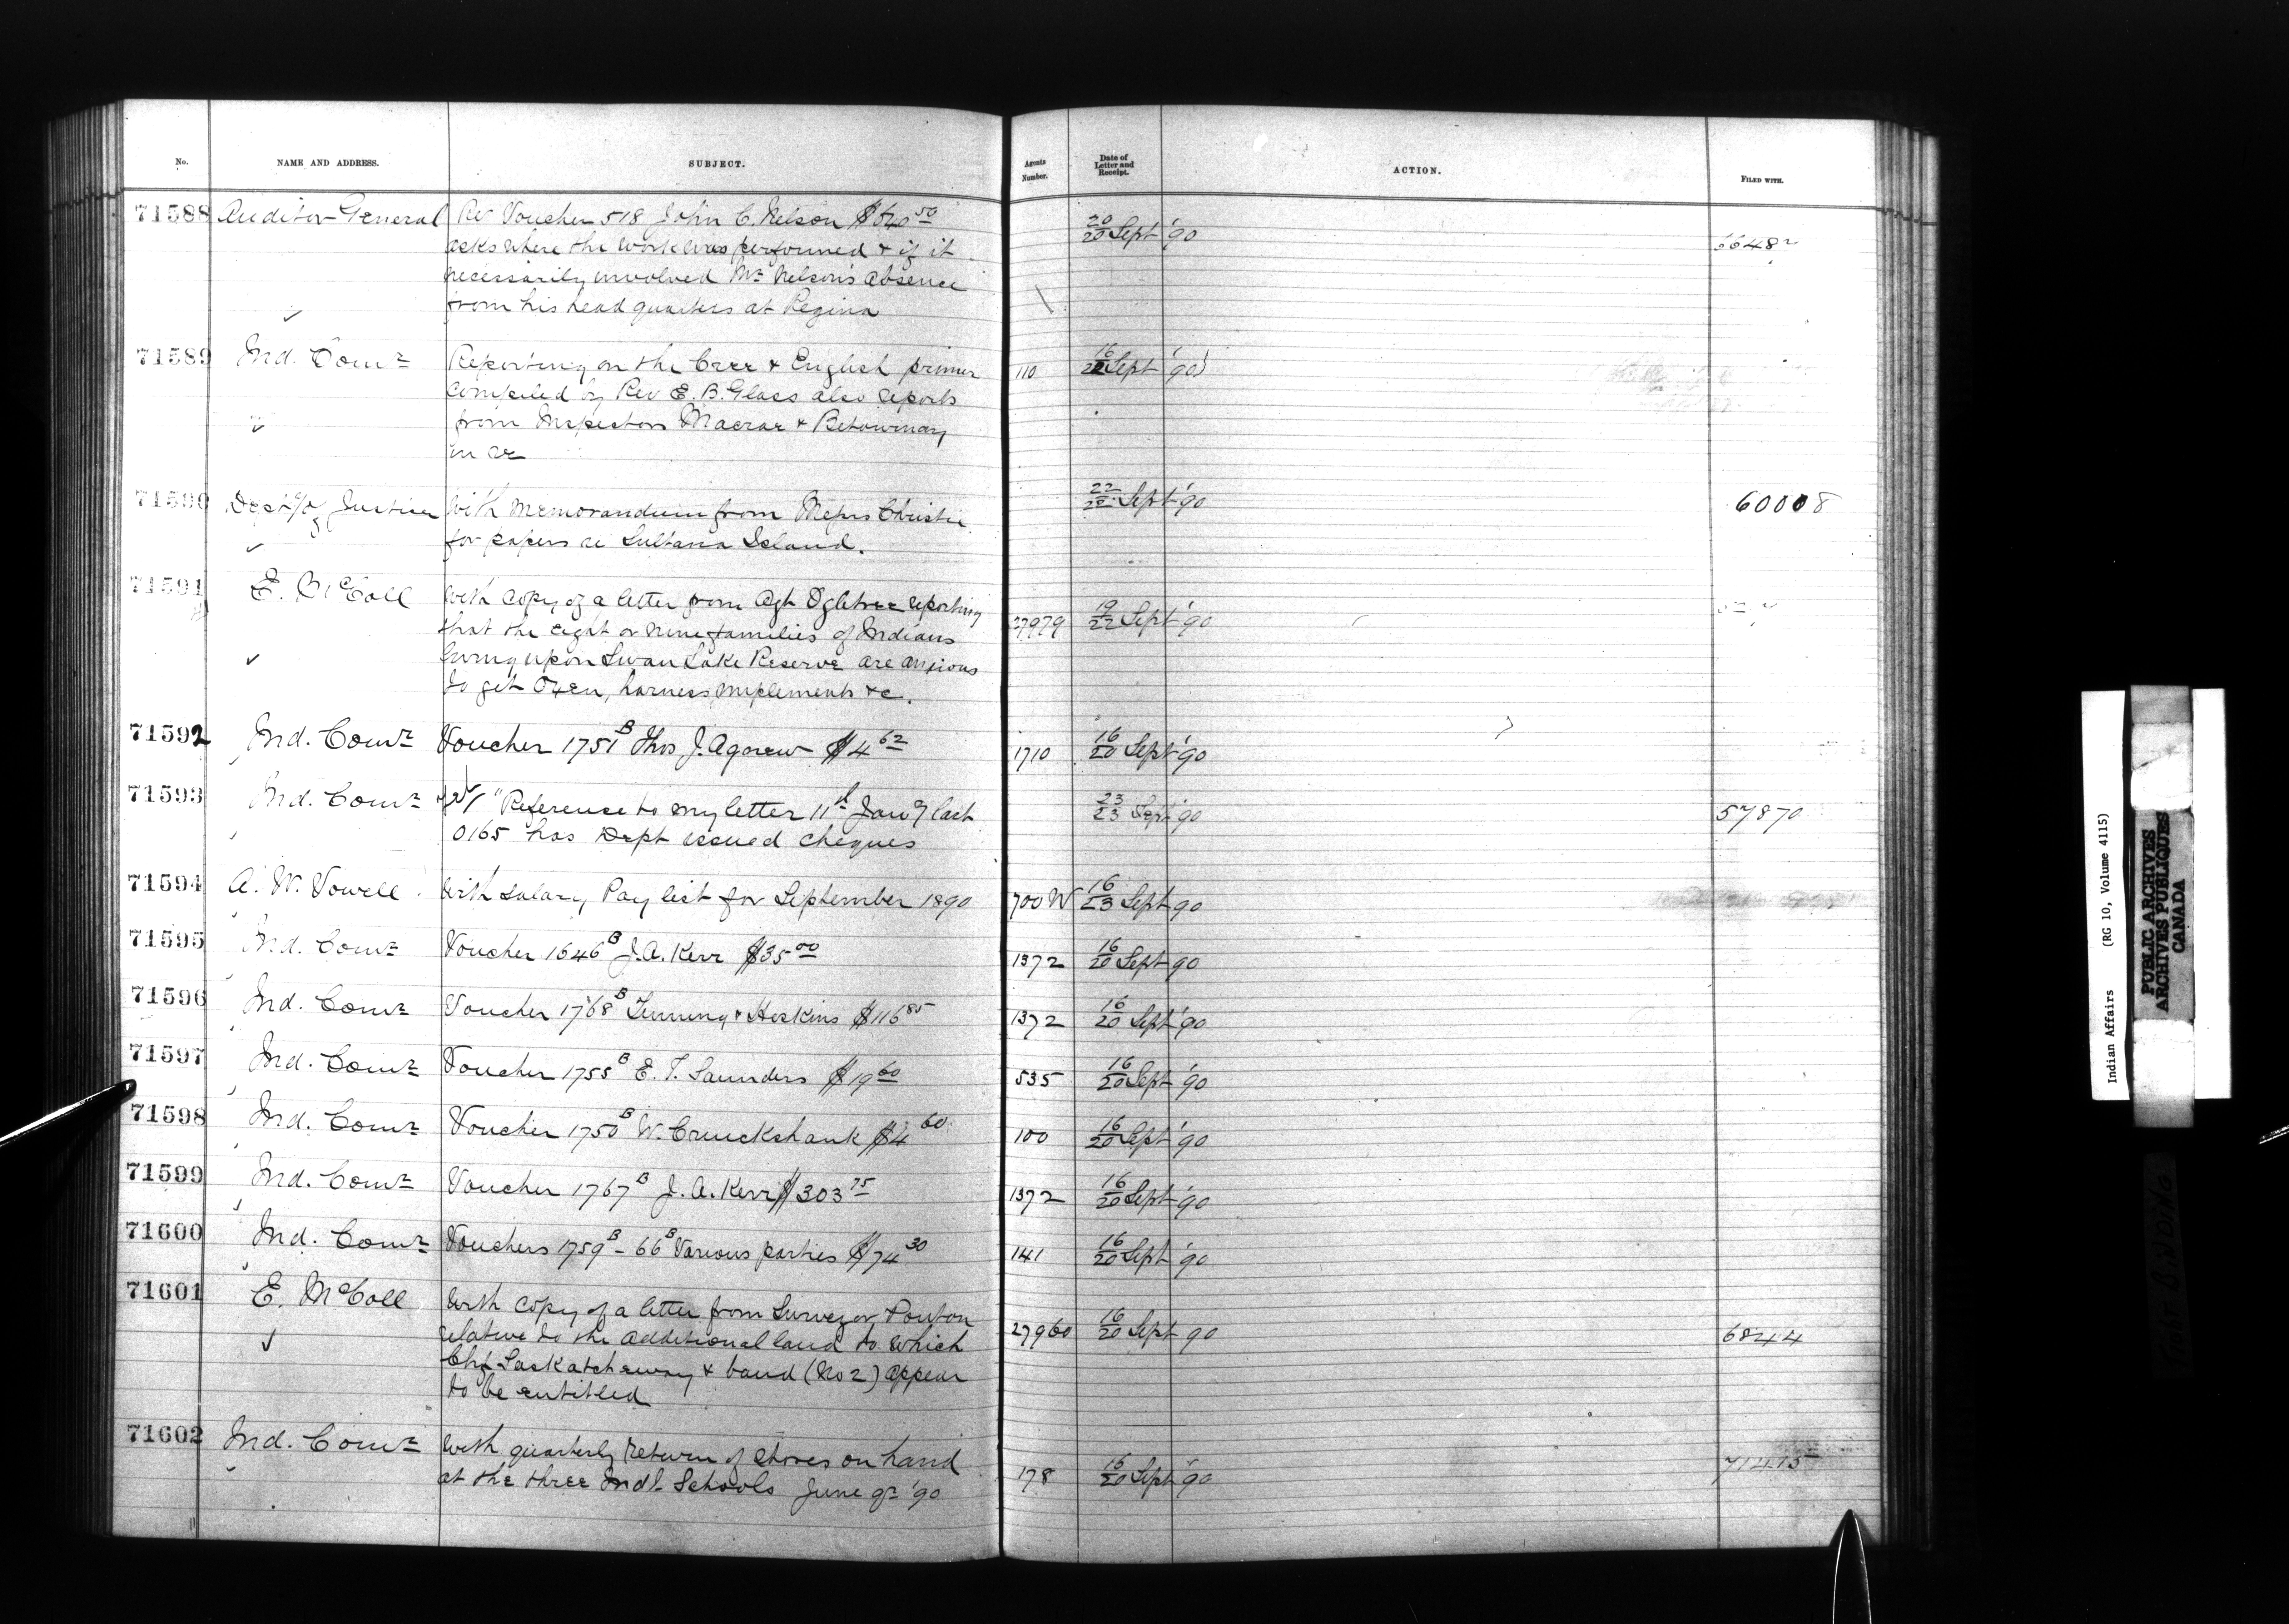 No. NAME AND ADDRESS. SUBJECT. Agents Number. Date of Letter and Receipt. ACTION. FILED WITH.
71588 Auditor General Re Voucher 518 John C. Nelson $540 50 20/20 Sept '90
asks where the work was performed & if it
necessarily involved Mr Nelson's absence
from his head quarters at Regina
71589 Ind. Comr Reporting on the Cree & English primer 110 16/22 Sept '90
compiled by Rev E. B. Glass also reports
from Inspectors Macrae & Betournay
in re
71590 Dept of Justice With Memorandum from Messrs Christie 22/22 Sept '90 60008
for papers re Sultana Island.
71591 E. McColl With copy of a letter from Agt Ogletree reporting 27979 19/22 Sept '90
that the eight or nine families of Indians
living upon Swan Lake Reserve are anxious
to get Oxen, harness, implements &c.
71592 Ind. Comr Voucher 1751B Thos J. Agnew $4 62 1710 16/20 Sept '90
71593 Ind. Comr "Reference to my letter 11th Jany last 23/23 Sept '90 57870
0165 has Dept issued cheques
71594 A. W. Vowell With Salary Pay list for September 1890 700 W 16/23 Sept 90
71595 Ind. Comr Voucher 1646B J. A. Kerr $35 00 1372 16/20 Sept 90
71596 Ind. Comr Voucher 1768B & Hoskins $116 85 1372 16/20 Sept '90
71597 Ind. Comr Voucher 1755B E. T. Saunders $19 60 535 16/20 Sept '90
71598 Ind. Comr Voucher 1750B W. Cruickshank $4 60 100 16/20 Sept '90
71599 Ind. Comr Voucher 1767B J. A. Kerr $303 75 1372 16/20 Sept '90
71600 Ind. Comr Vouchers 1759B - 66B Various parties $74 30 141 16/20 Sept '90
71601 E. McColl With copy of a letter from Surveyor Ponton 27960 16/20 Sept 90 6844
relative to the additional land to which
Chf Saskatcheway & band (No 2) appear
to be entitled
71602 Ind. Comr With quarterly return of stores on hand 178 16/20 Sept '90 71415
at the three Indl Schools June qr '90
Indian Affairs (RG 10, Volume 4115)
PUBLIC ARCHIVES
ARCHIVES PUBLIQUES
CANADA
TIGHT BINDING